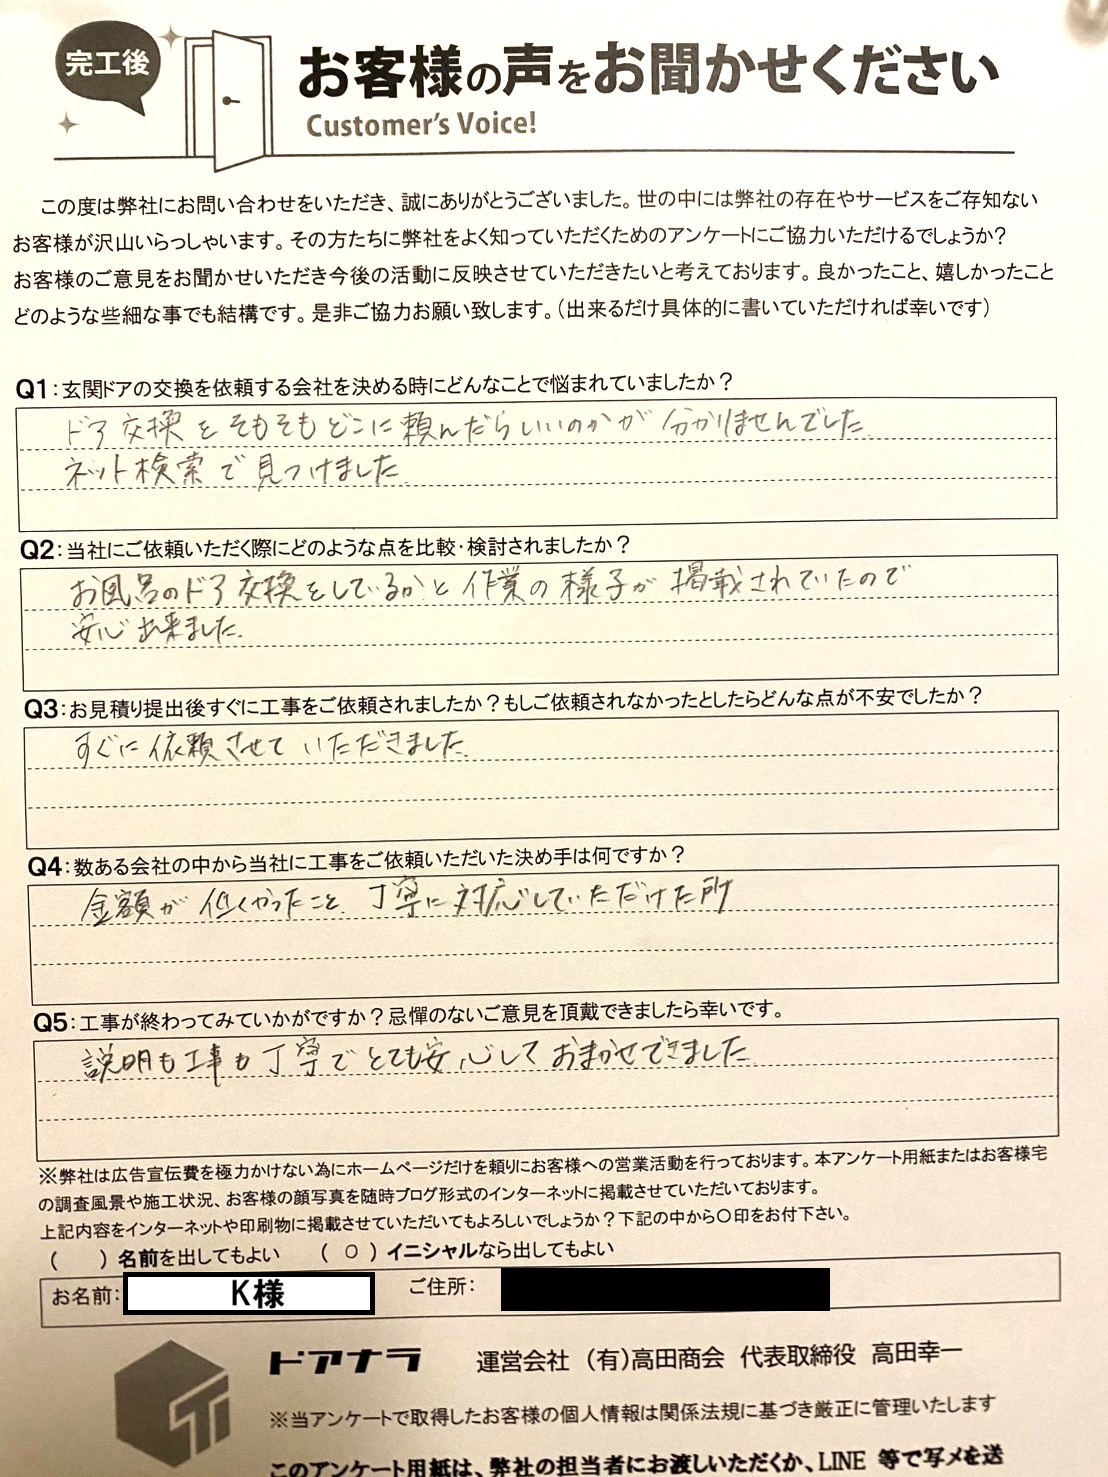 完工後
お客様の声をお聞かせください
Customer's Voice!
この度は弊社にお問い合わせをいただき、誠にありがとうございました。世の中には弊社の存在やサービスをご存知ない
お客様が沢山いらっしゃいます。その方たちに弊社をよく知っていただくためのアンケートにご協力いただけるでしょうか?
お客様のご意見をお聞かせいただき今後の活動に反映させていただきたいと考えております。良かったこと、嬉しかったこと
どのような些細な事でも結構です。是非ご協力お願い致します。(出来るだけ具体的に書いていただければ幸いです)
Q1:玄関ドアの交換を依頼する会社を決める時にどんなことで悩まれていましたか?
ドア交換をそもそもどこに頼んだらいいのかが分かりませんでした
ネット検索で見つけました
Q2:当社にご依頼いただく際にどのような点を比較・検討されましたか?
お風呂のドア交換をしているかと作業の様子が掲載されていたので
安心出来ました.
Q3:お見積り提出後すぐに工事をご依頼されましたか?もしご依頼されなかったとしたらどんな点が不安でしたか?
すぐに依頼させていただきました.
Q4:数ある会社の中から当社に工事をご依頼いただいた決め手は何ですか?
金額が低くかったこと、丁寧に対応していただけた所
Q5:工事が終わってみていかがですか?忌憚のないご意見を頂戴できましたら幸いです。
説明も工事も丁寧でとても安心しておまかせできました
※弊社は広告宣伝費を極力かけない為にホームページだけを頼りにお客様への営業活動を行っております。本アンケート用紙またはお客様宅
の調査風景や施工状況、お客様の顔写真を随時ブログ形式のインターネットに掲載させていただいております。
上記内容をインターネットや印刷物に掲載させていただいてもよろしいでしょうか?下記の中から○印をお付下さい。
(　)名前を出してもよい　(○)イニシャルなら出してもよい
お名前: K様 ご住所:
ドアナラ 運営会社 (有)高田商会 代表取締役 高田幸一
※当アンケートで取得したお客様の個人情報は関係法規に基づき厳正に管理いたします
このアンケート用紙は、弊社の担当者にお渡しいただくか、LINE 等で写メを送